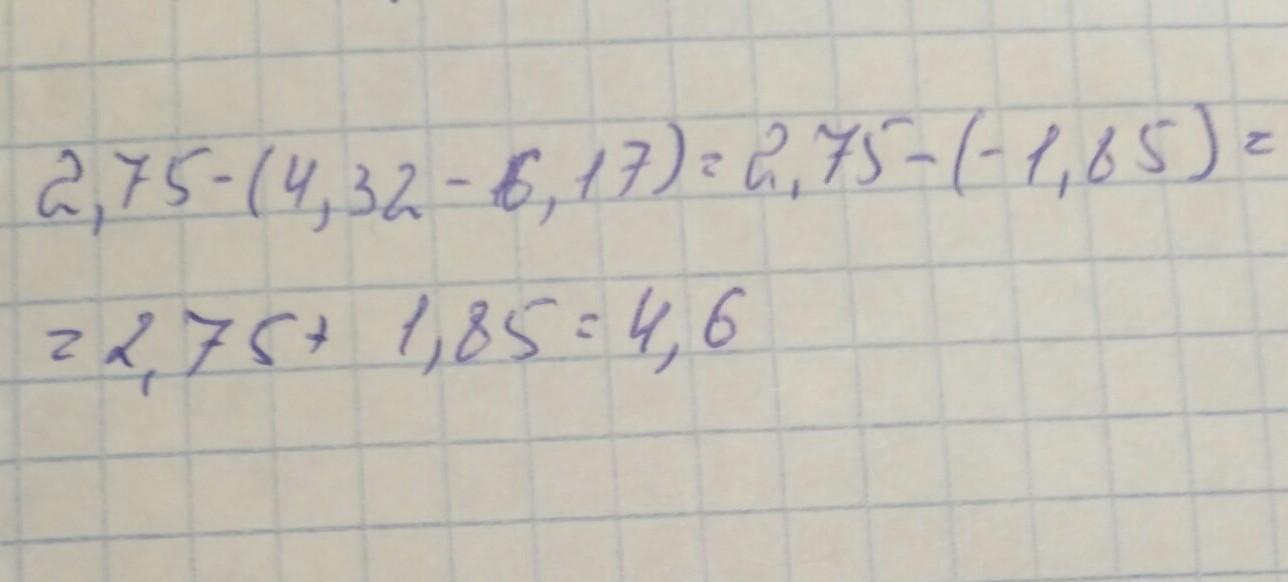 2,75-(4,32-6,17)=2,75-(-1,85)=
=2,75+ 1,85=4,6